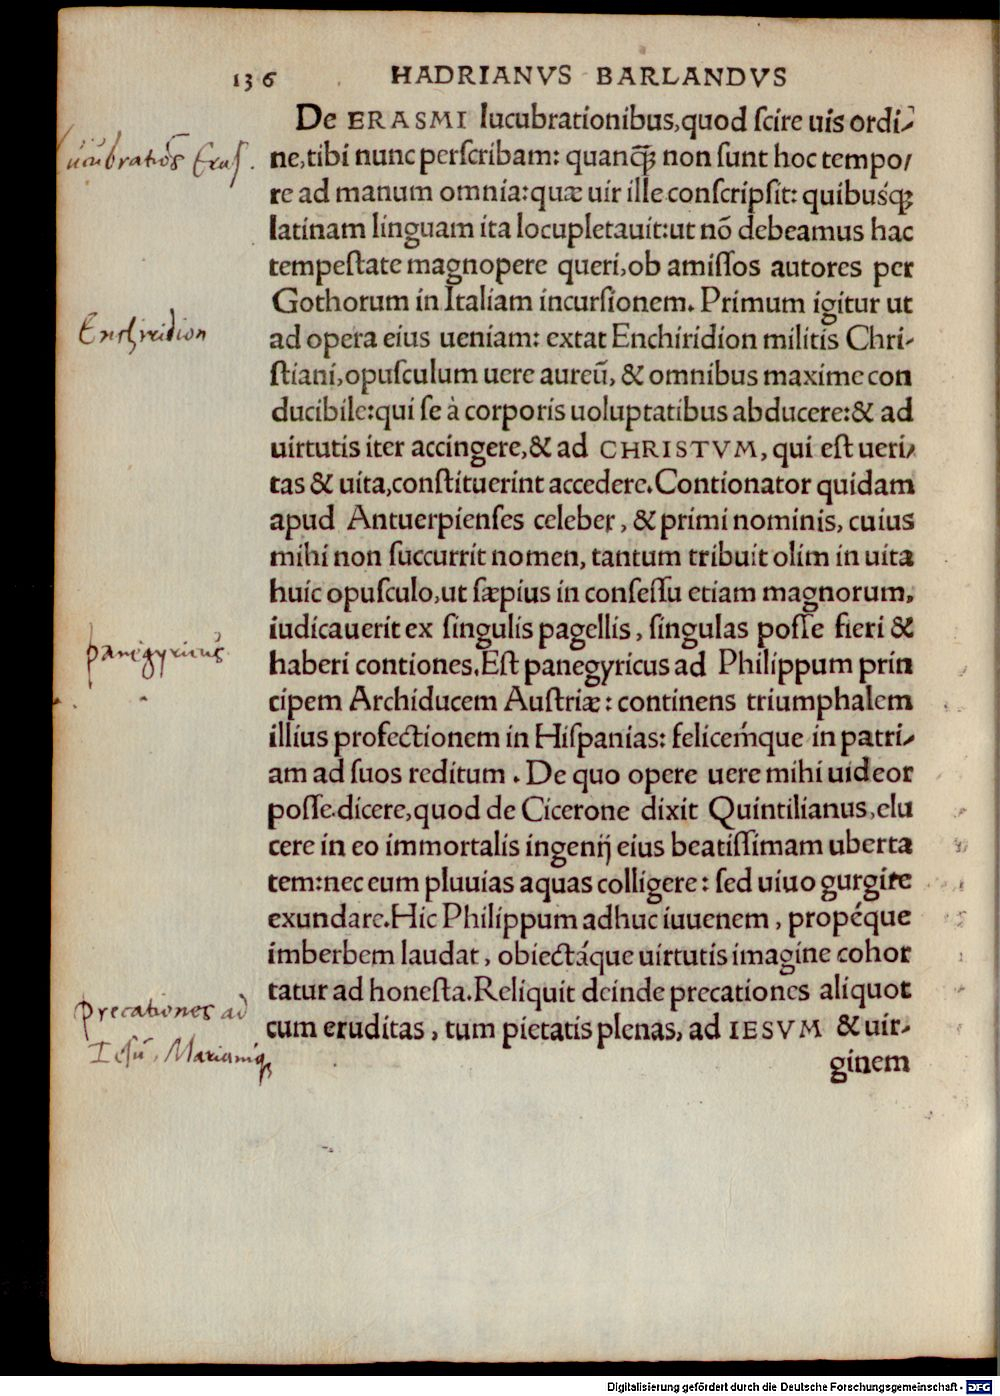 136 HADRIANVS BARLANDVS
De ERASMI lucubrationibus,quod ſcire uis ordi-
lucubratiōs Eraſ.
ne,tibi nunc perſcribam: quanqꝫ non ſunt hoc tempo/
re ad manum omnia:quæ uir ille conſcripſit: quibuśqꝫ
latinam linguam ita locupletauit:ut nō debeamus hac
tempeſtate magnopere queri,ob amiſſos autores per
Gothorum in Italiam incurſionem. Primum igitur ut
Enchiridion
ad opera eius ueniam: extat Enchiridion militis Chri-
ſtiani,opuſculum uere aureū, & omnibus maxime con
ducibile:qui ſe à corporis uoluptatibus abducere:& ad
uirtutis iter accingere,& ad CHRISTVM, qui eſt ueri-
tas & uita,conſtituerint accedere.Contionator quidam
apud Antuerpienſes celeber, & primi nominis, cuius
mihi non ſuccurrit nomen, tantum tribuit olim in uita
huic opuſculo,ut ſæpius in conſeſſu etiam magnorum,
iudicauerit ex ſingulis pagellis, ſingulas poſſe fieri &
panegyricus
haberi contiones.Eſt panegyricus ad Philippum prin
cipem Archiducem Auſtriæ: continens triumphalem
illius profectionem in Hiſpanias: feliceḿque in patri-
am ad ſuos reditum. De quo opere uere mihi uideor
poſſe.dicere,quod de Cicerone dixit Quintilianus,elu
cere in eo immortalis ingenij eius beatiſſimam uberta
tem:nec eum pluuias aquas colligere: ſed uiuo gurgite
exundare.Hic Philippum adhuc iuuenem, propéque
imberbem laudat, obiectáque uirtutis imagine cohor
tatur ad honeſta.Reliquit deinde precationes aliquot
Precationes ad
cum eruditas, tum pietatis plenas, ad IESVM & uir-
Ieſū, Mariamqꝫ
ginem
Digitalisierung gefördert durch die Deutsche Forschungsgemeinschaft - DFG